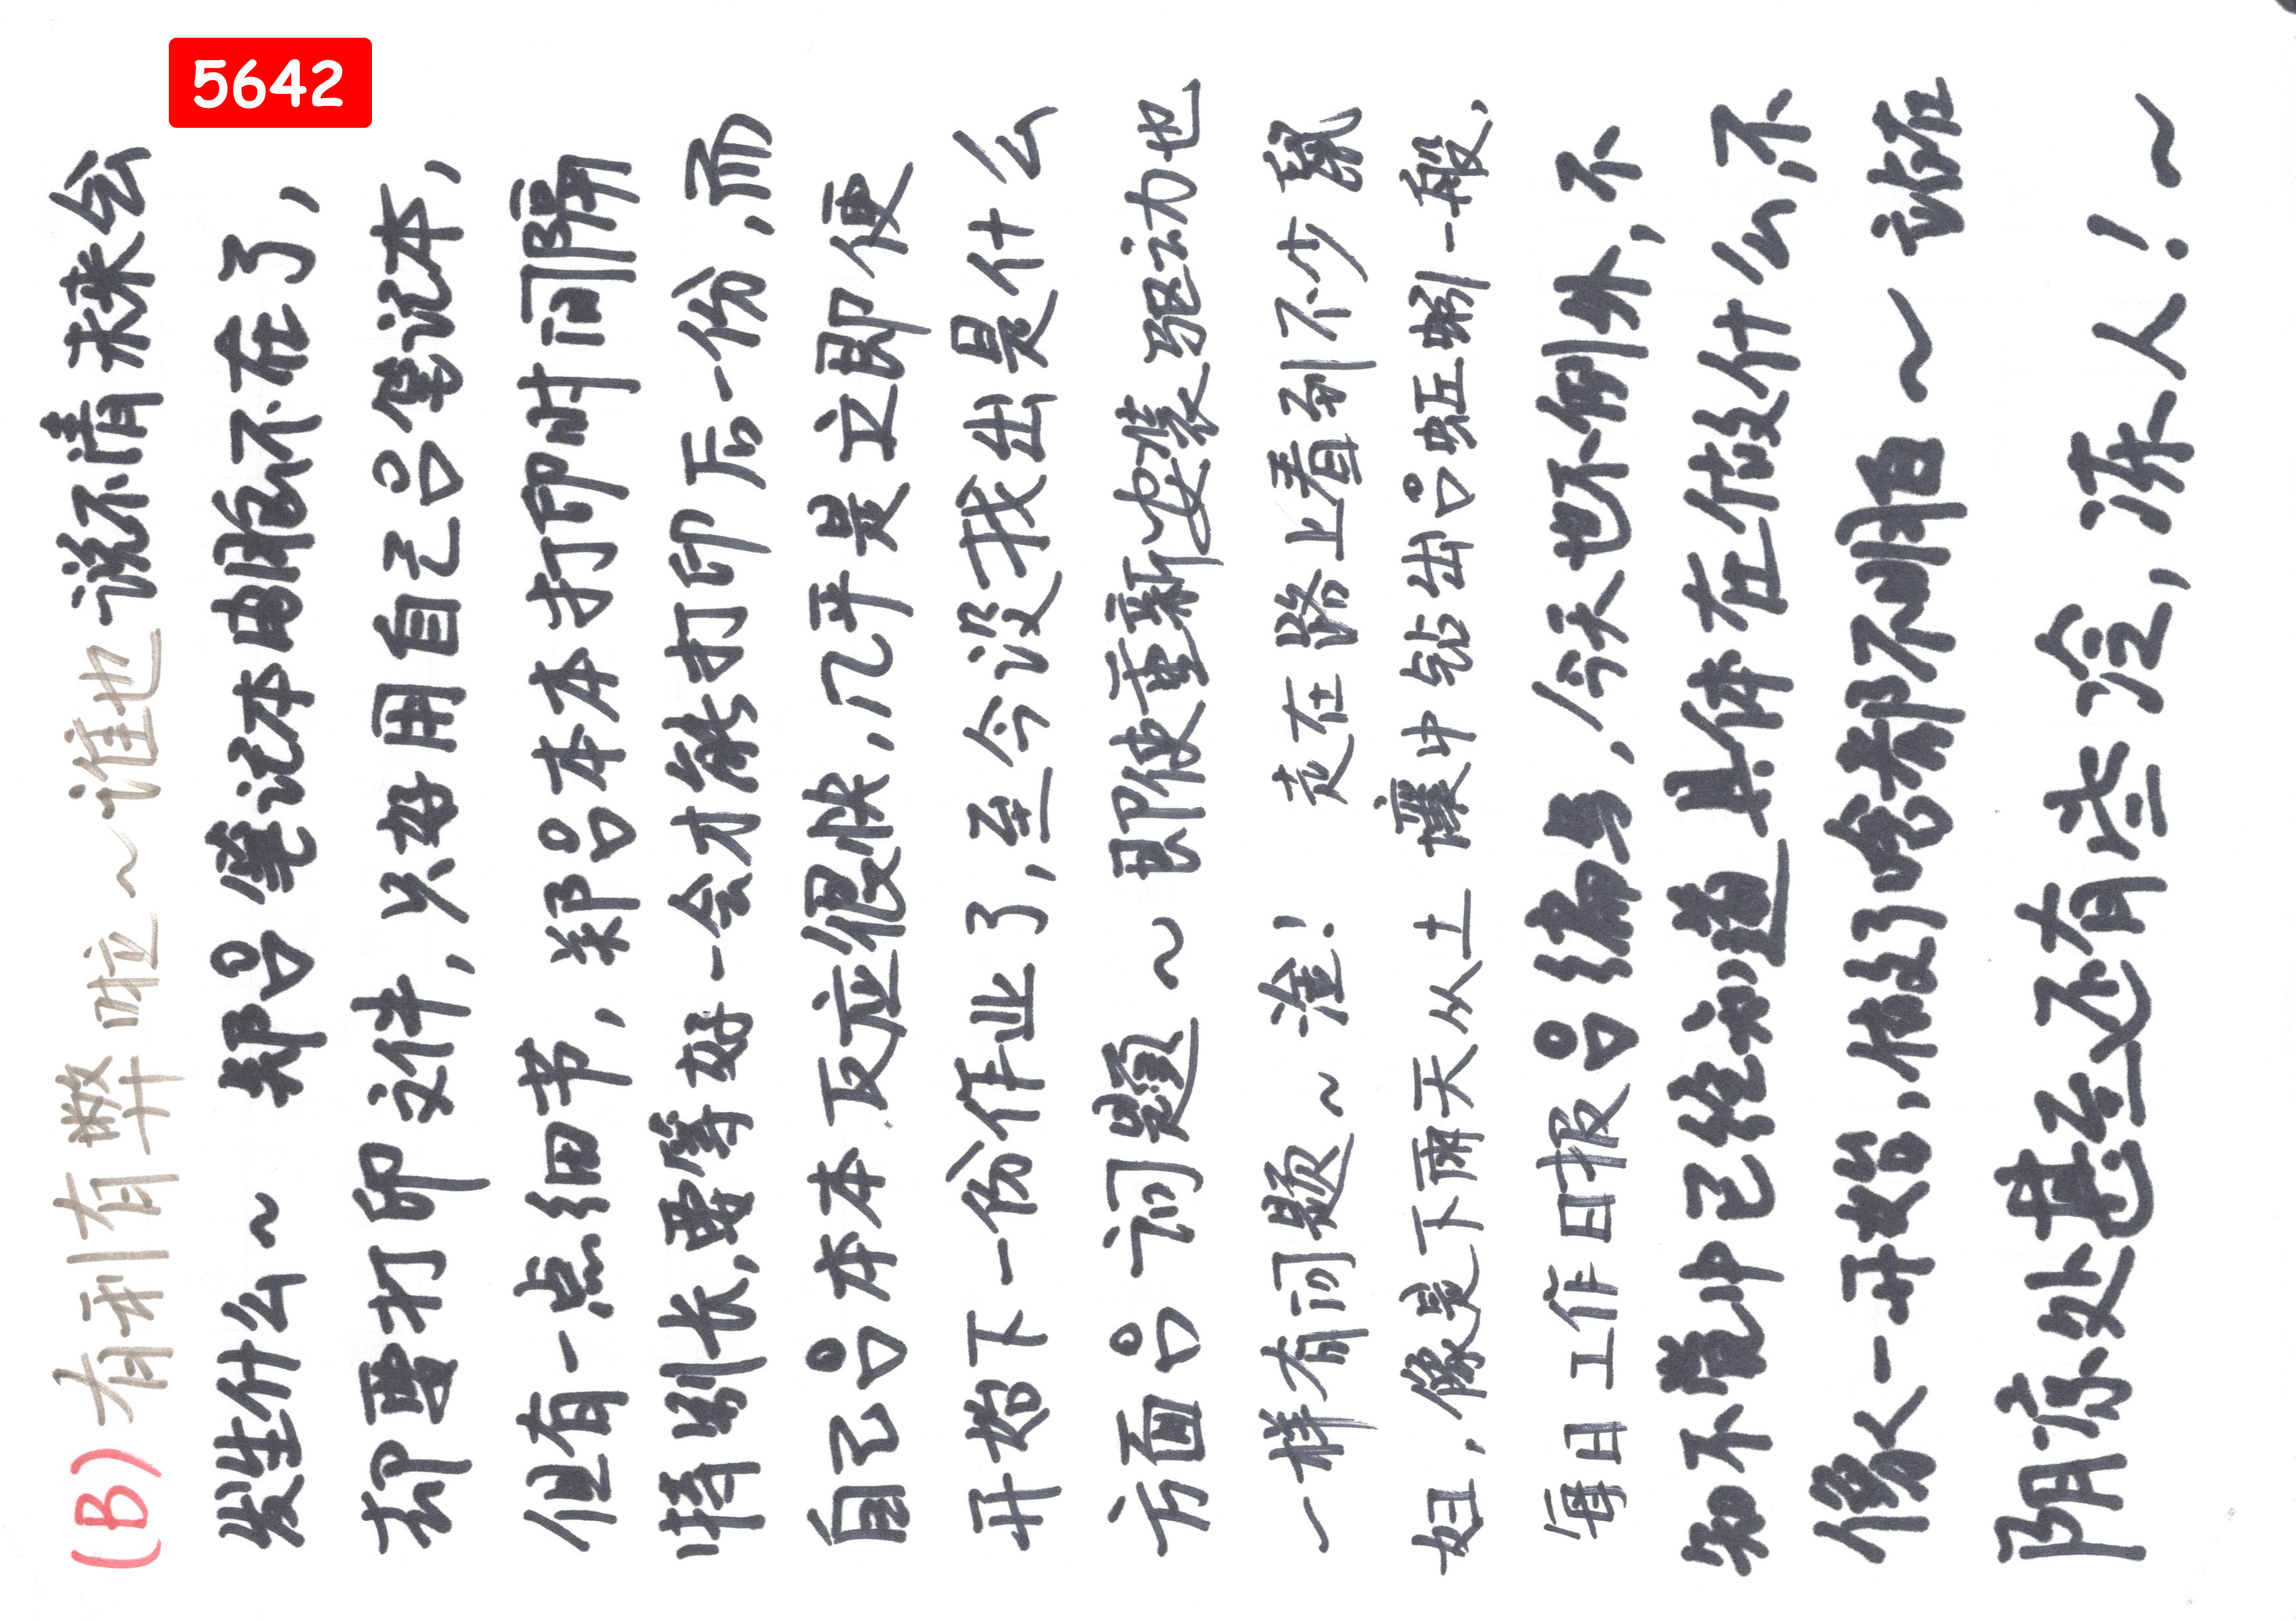 5642
(B)有利有弊啦~谁也说不清未来会
发生什么~ 郑的笔记本电脑不在了,
却要打印文件,只好用自己的笔记本,
但有一点细节,郑的本本打印时间隔
特别长,要等好一会才能打印后一份,而
自己的本本反应很快,几乎是立即便
开始下一份作业了,至今没我出是什么
方面的问题~ 即使重新安装驱动也
一样有问题~淦! 走在路上看到不少鼠
妇,像是下雨天从土壤中钻出的蚯蚓一般.
每日工作日报的编号,今天也不例外,不
知不觉中已经知道具体在做什么,不
像一开始,做了啥都不明白~ 站在
阴凉处甚至还有些冷,冻人!~